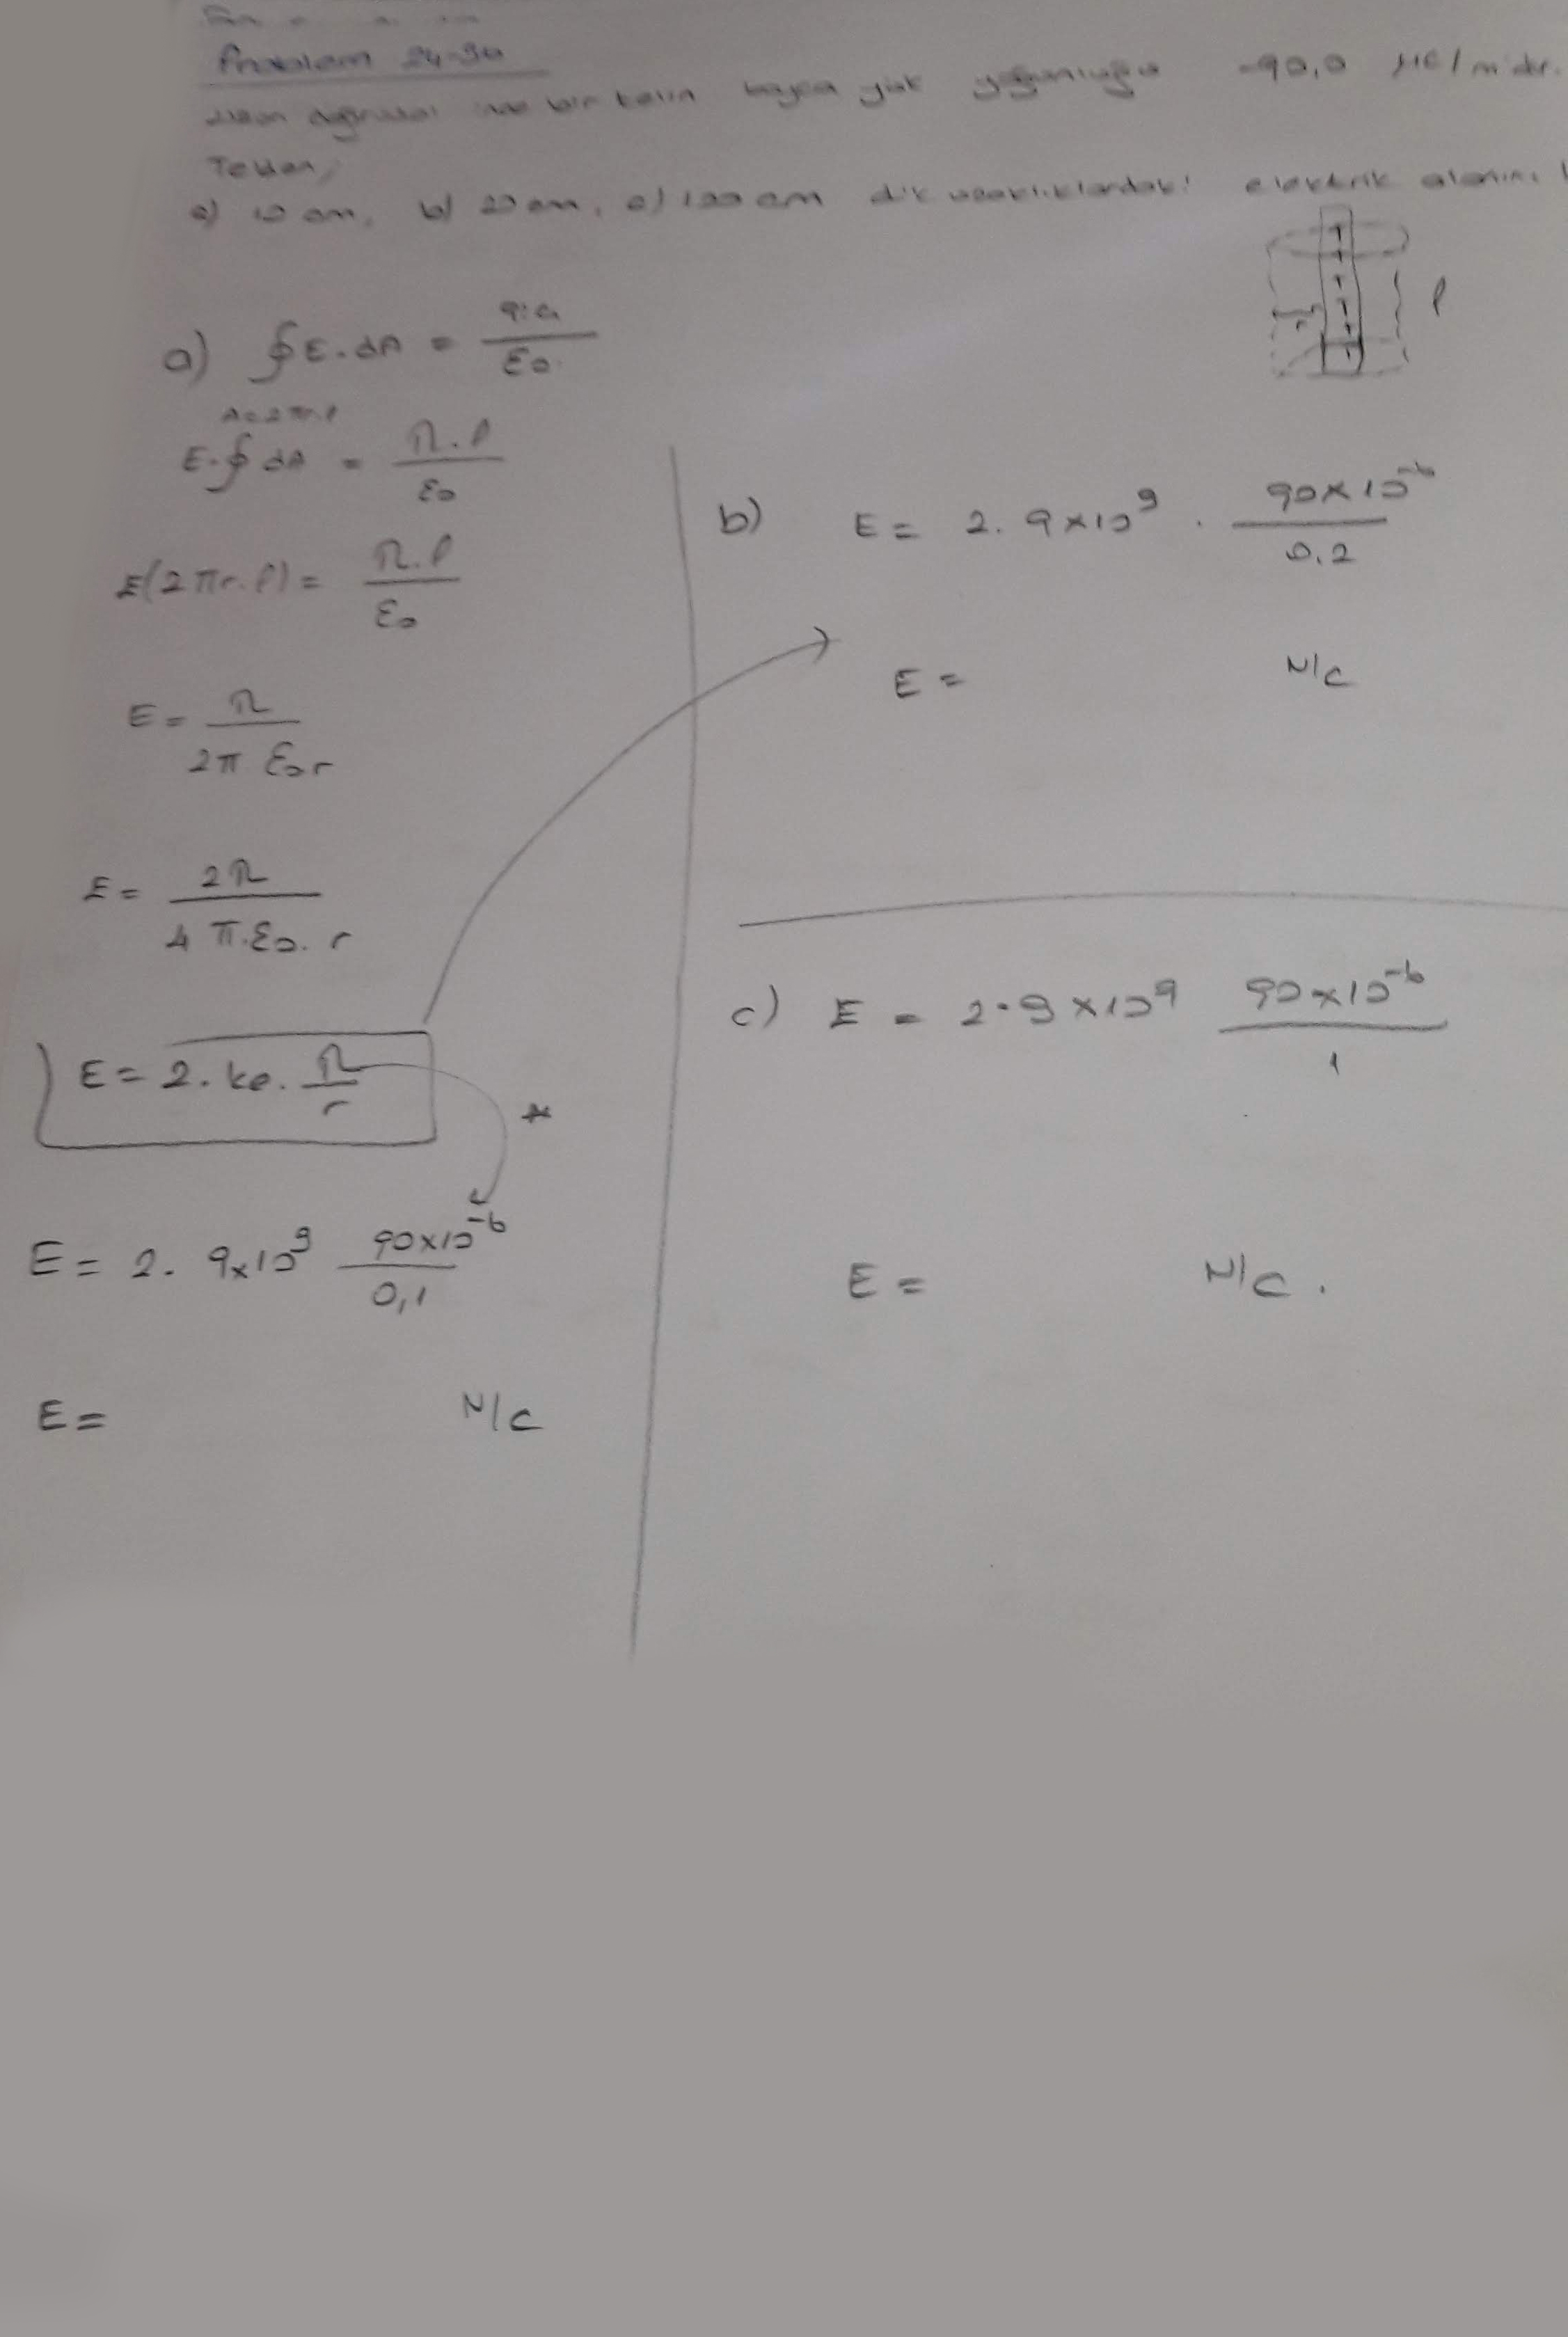 Problem 24-30
bir telin boyca yük yoğunluğu -90,0 µC/m'dir.
Telden,
a) 10 cm, b) 20 cm, c) 100 cm dik uzaklıklardaki elektrik alanını
l
r
a) ∮E.dA = qiç / ε0
A=2πr.l
E.∮dA = λ.l / ε0
E(2πr.l) = λ.l / ε0
E = λ / 2π ε0 r
E = 2λ / 4π.ε0.r
E = 2.ke. λ / r
*
E = 2. 9x10⁹ 90x10⁻⁶ / 0,1
E = N/C
b) E = 2. 9x10⁹ . 90x10⁻⁶ / 0,2
E = N/C
c) E = 2.9x10⁹ 90x10⁻⁶ / 1
E = N/C.